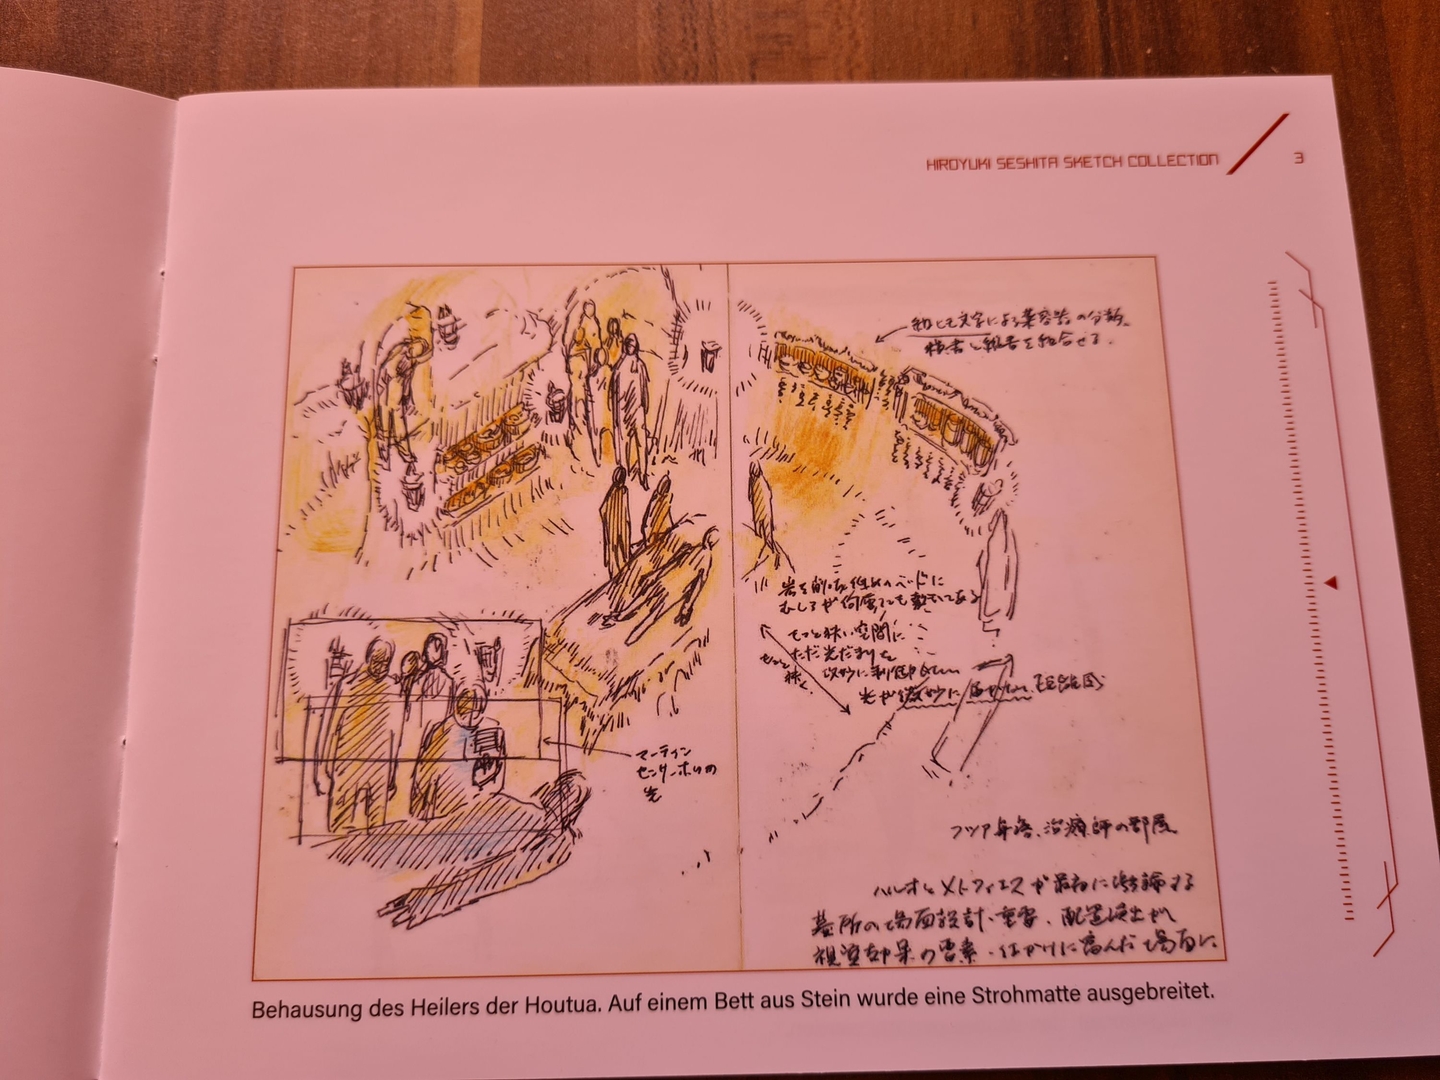 HIROYUKI SESHITA SKETCH COLLECTION 3
による薬容器の分類。
横書と縦書を組合せる。
岩を削った低めのベッドに
むしろが何層にも敷いてある
もっと狭い空間に
ただ光だまりを
巧妙に利用したい
もっと
狭く
光が微妙に届かない 距離感
マーティン
センサーホロの
光
フツア 治療師の部屋
ハルオとメトフィエスが最初に議論する
墓所の場面設計・重要、配置演出が
視覚効果の要素・仕かけに富んだ場面に
Behausung des Heilers der Houtua. Auf einem Bett aus Stein wurde eine Strohmatte ausgebreitet.